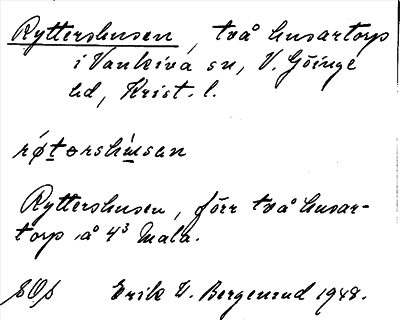 Ryttershusen, två husartorp
i Vankiva sn, V. Göinge
hd, Krist. l.
røtərshusan
Ryttershusen, förr två husar-
torp å 4³ Mala.
SOS Erik W. Bergenrud 1948.